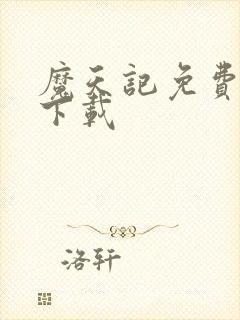 魔天記免費
下載
洛轩